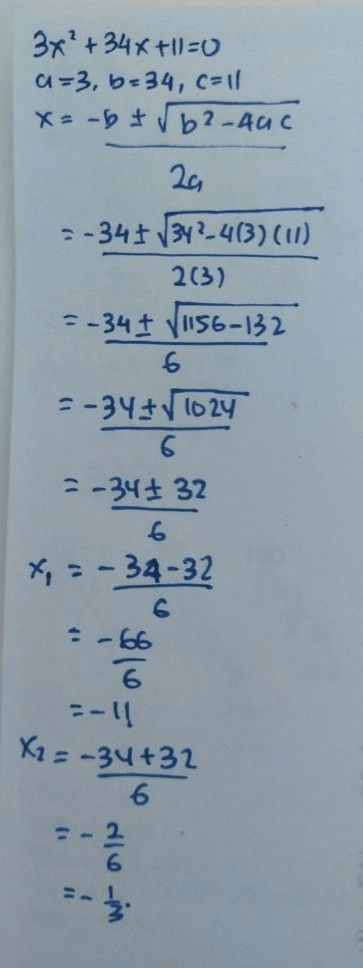 3x² + 34x + 11 = 0
a = 3, b = 34, c = 11
x = -b ± √b² - 4ac
2a
= -34 ± √34² - 4(3)(11)
2(3)
= -34 ± √1156 - 132
6
= -34 ± √1024
6
= -34 ± 32
6
x₁ = -34 - 32
6
= -66
6
= -11
x₂ = -34 + 32
6
= - 2
6
= - 1
3.